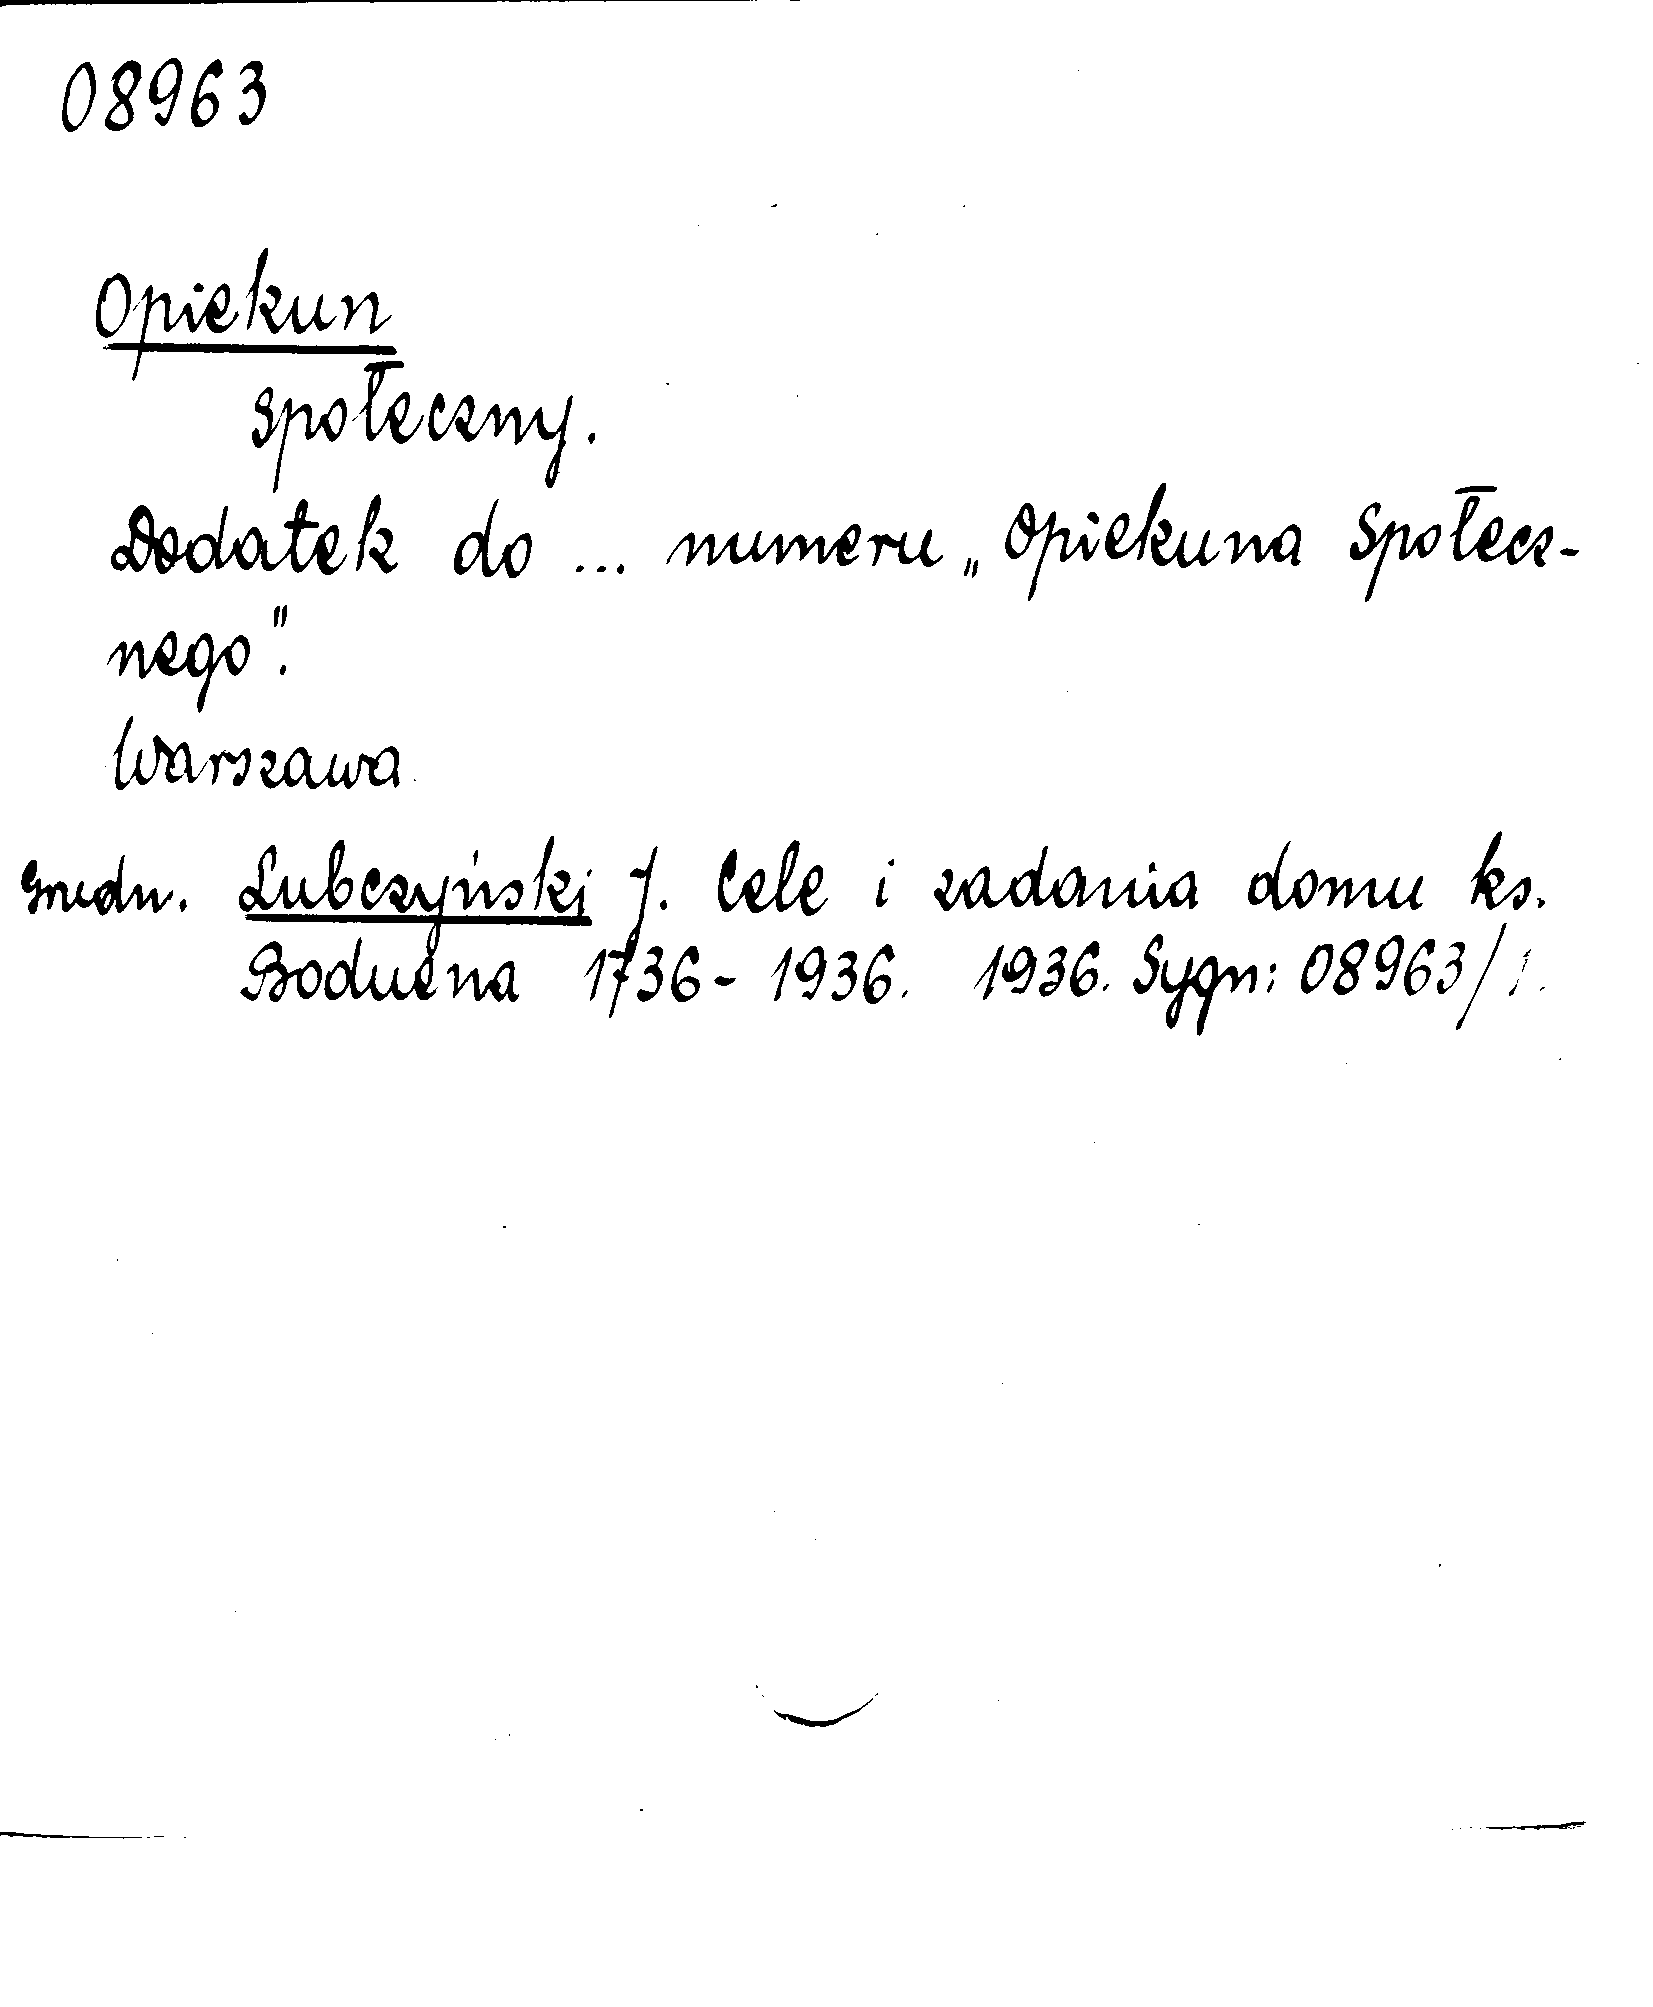 08963
Opiekun
społeczny.
Dodatek do ... numeru „Opiekuna Społecz-
nego".
Warszawa
Lubczyński J. Cele i zadania domu ks.
Boduena 1736-1936. 1936. Sygn: 08963/1.